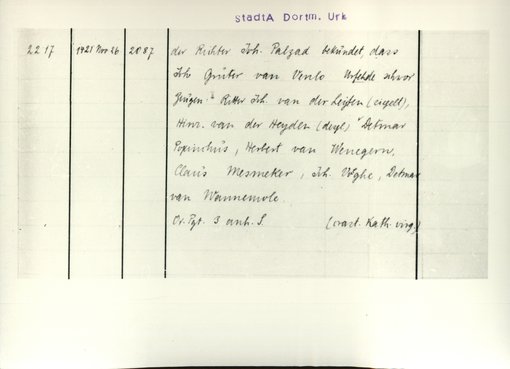 StadtA Dortm. Urk
2217 1421 Nov 26 2087 der Richter Joh. Palzad bekundet, dass
Joh Grüter van Venlo Urfehde schwor
Zeugen: Ritter Joh. van der Leyten
Hinr. van der Heyden (deyl) Detmar
Herbert van Wenegern,
Claus Mesmeker, Joh. Voghe, Detmar
van Wannemole.
Or. Pgt. 3 anh. S. (crast. Kath. virg.)